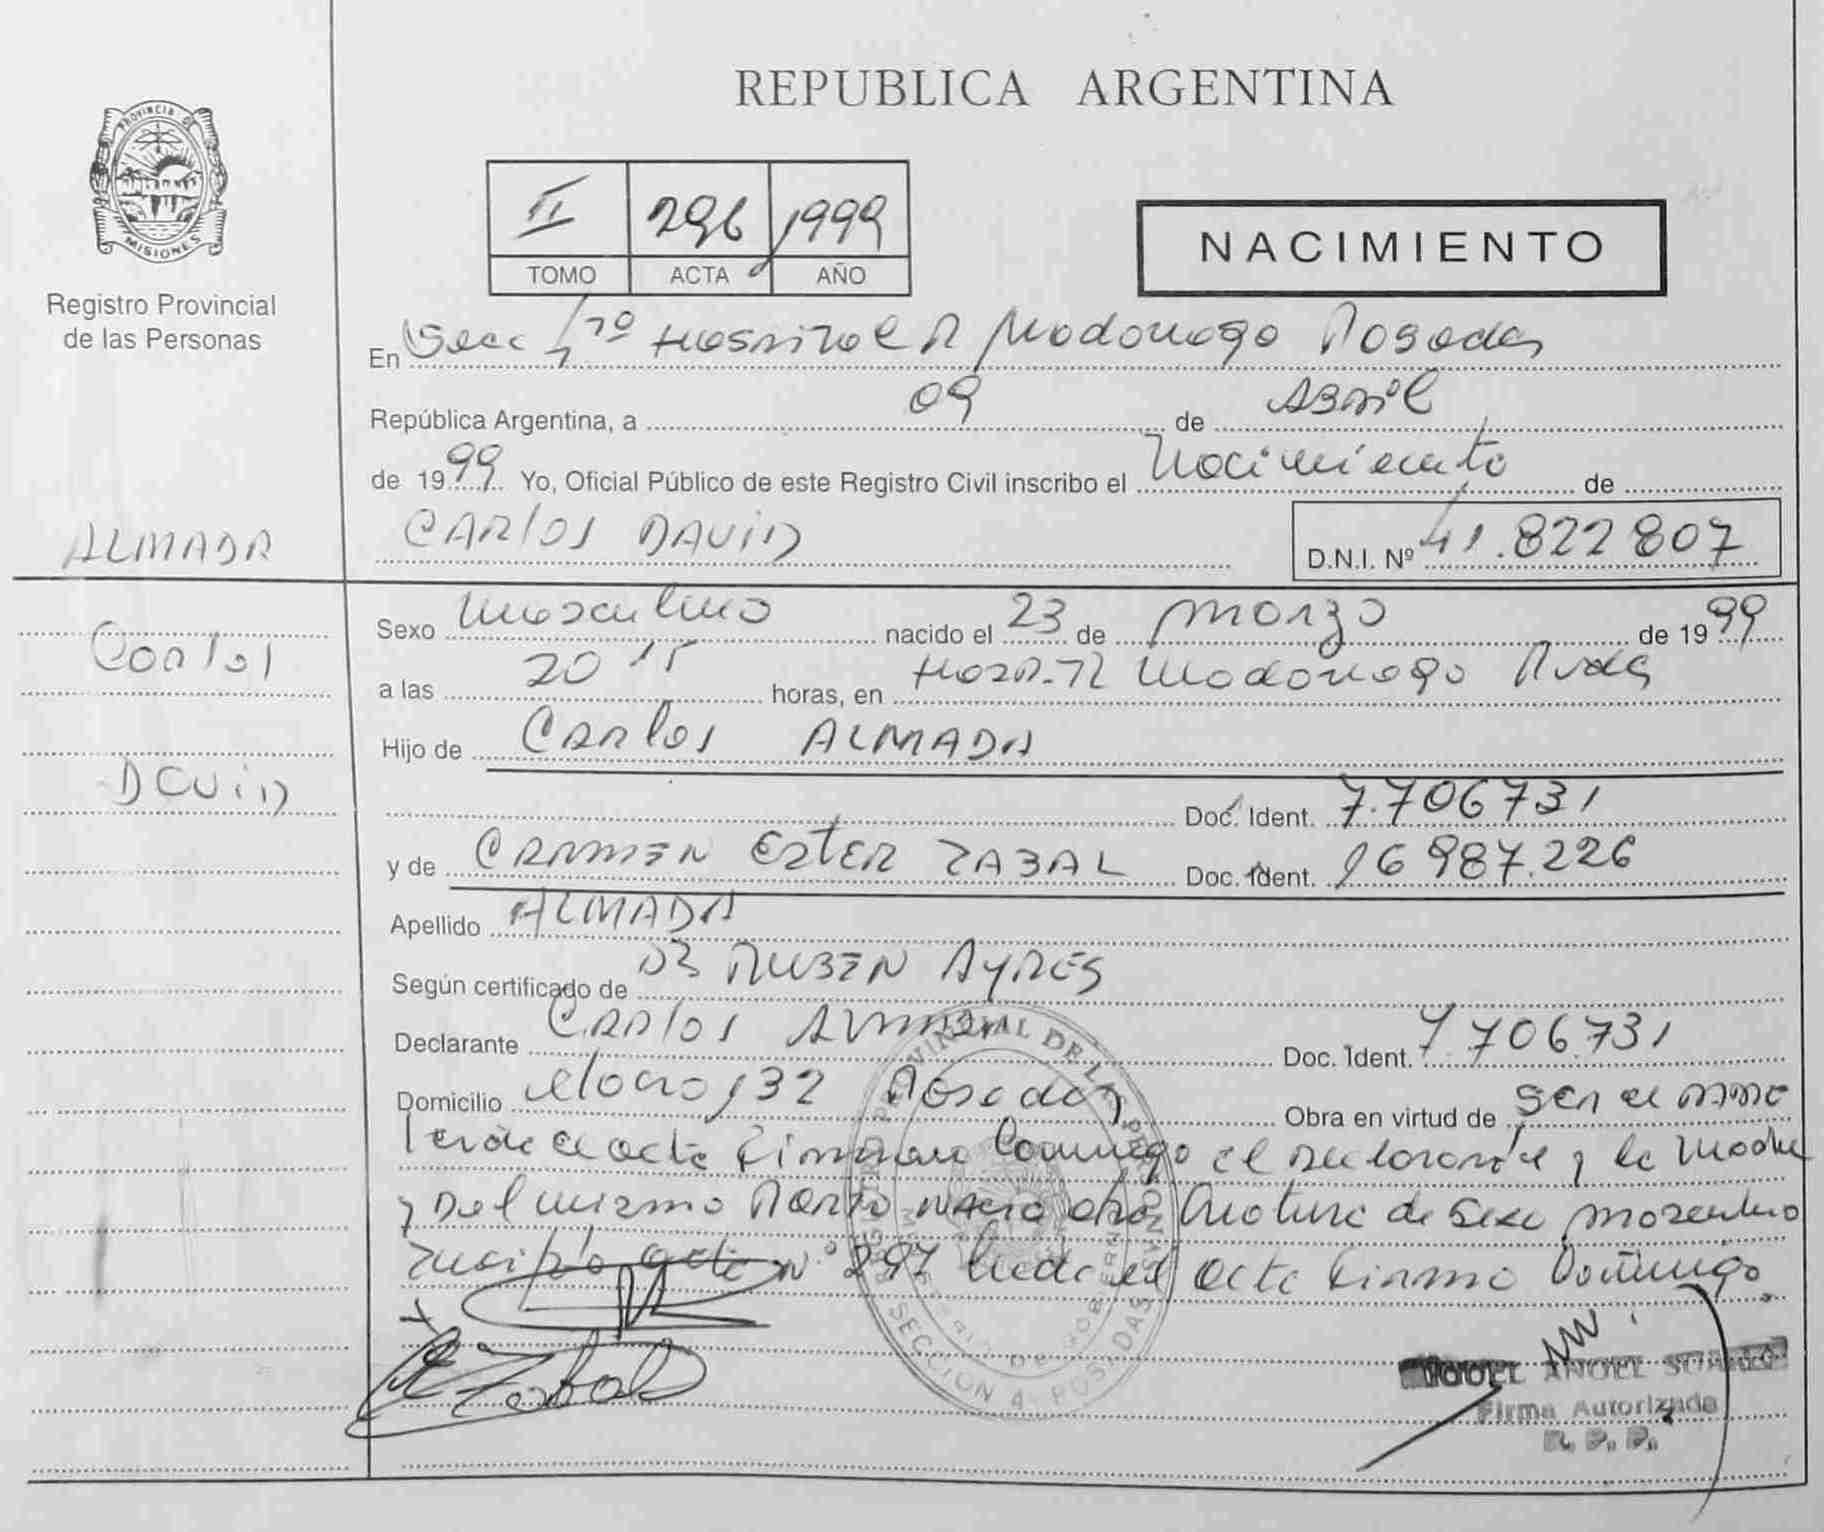 REPUBLICA ARGENTINA
PROVINCIA DE
MISIONES
Registro Provincial
de las Personas
II 296 1999
TOMO ACTA AÑO
NACIMIENTO
En Secc 7º Hospital R Madariaga Posadas
República Argentina, a 09 de Abril
de 1999 Yo, Oficial Público de este Registro Civil inscribo el Nacimiento de
CARLOS DAVID
D.N.I. Nº 41.822807
ALMADA
Carlos
DAVID
Sexo Masculino nacido el 23 de Marzo de 1999
a las 20 15 horas, en Hosp. R Madariaga Pdas
Hijo de Carlos ALMADA
Doc. Ident. 7.706731
y de CARMEN ESTER ZABAL Doc. Ident. 16 987.226
Apellido ALMADA
Según certificado de DR RUBEN AYRES
Declarante Carlos Almada Doc. Ident. 7706.731
Domicilio 132 Posadas Obra en virtud de Ser el padre
Leida el acta firman conmigo el declarante y la Madre
y Del mismo Parto nacio otra criatura de sexo masculino
Inscripto acta Nº 297 Leida el acta firman conmigo
Zabal
PROVINCIAL DE LAS PERSONAS
SECCION 4 POSADAS
ANGEL
Firma Autorizada
R. P. P.